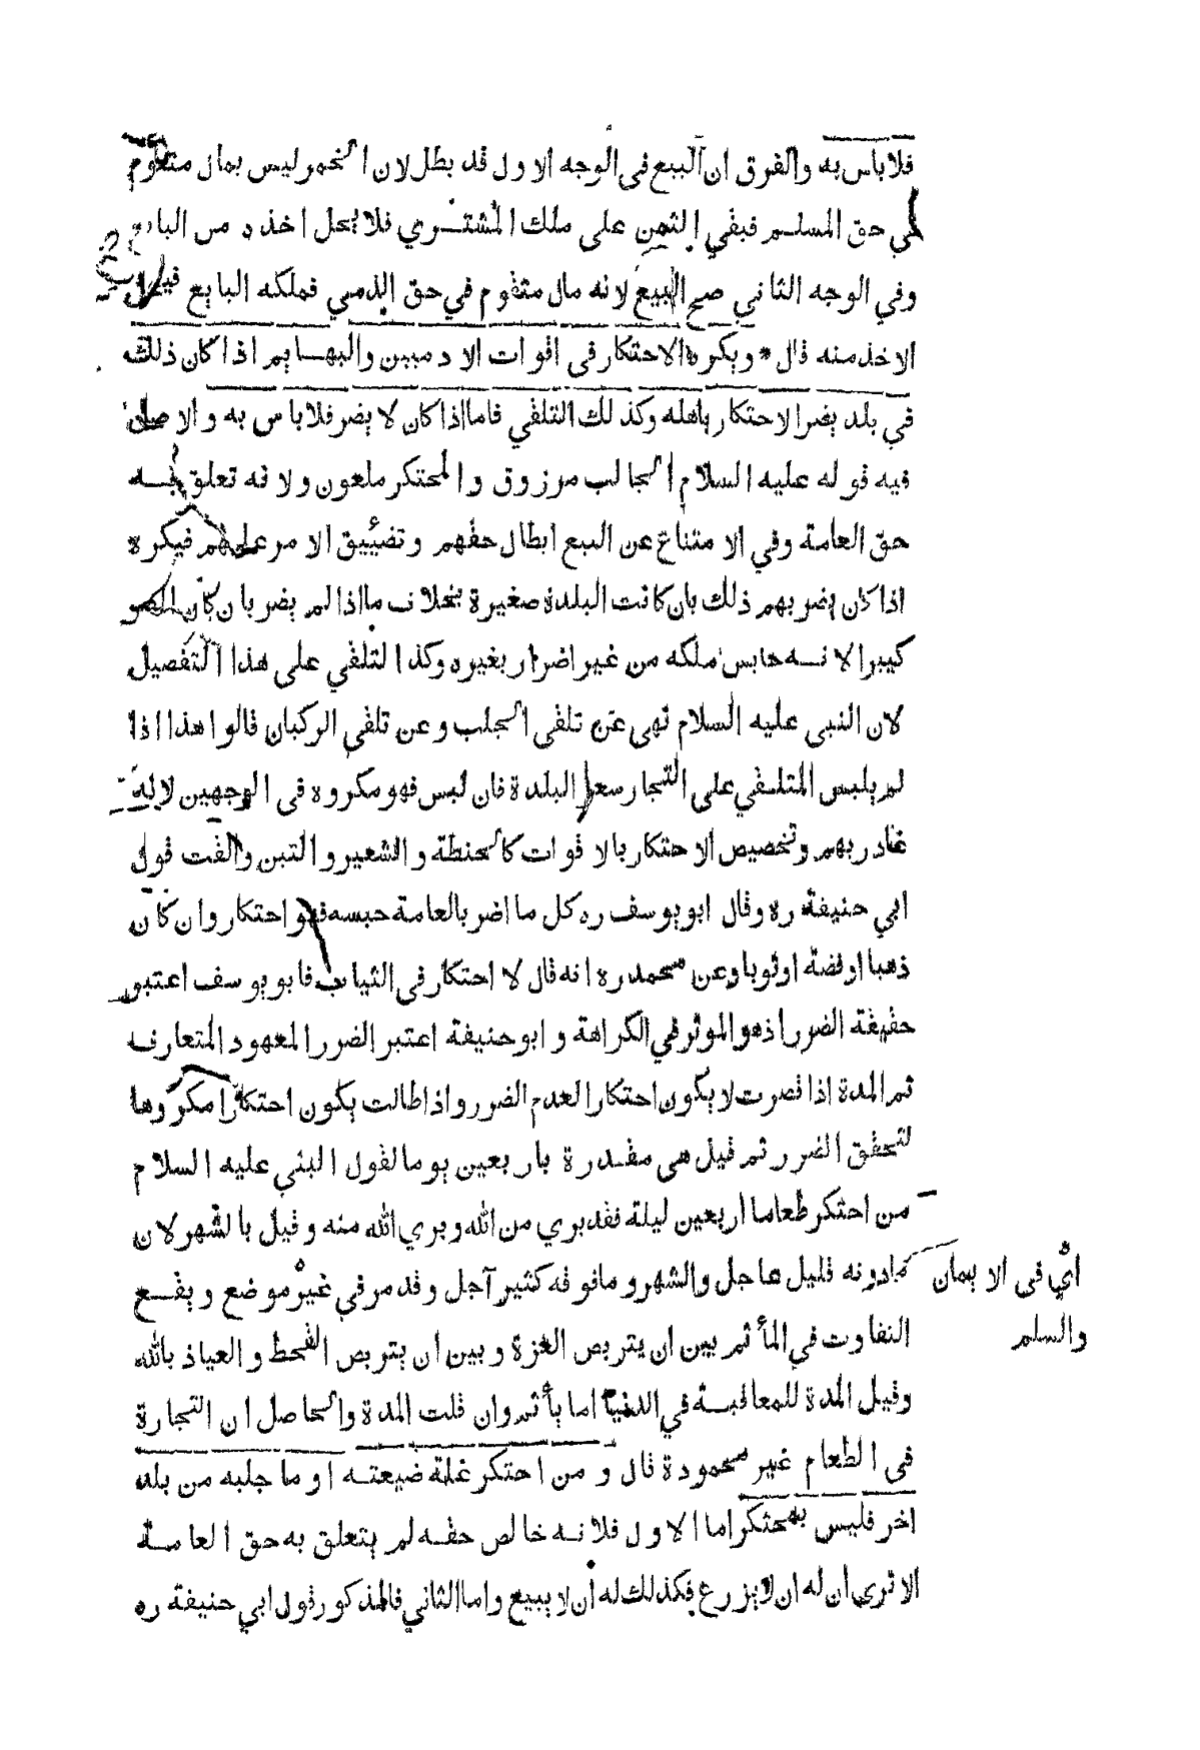 فلا باس به والفرق ان البيع في الوجه الاول قد بطل لان الخمر ليس بمال متقوم
في حق المسلم فبقي الثمن على ملك المشتري فلا يحل اخذه من البايع
وفي الوجه الثاني صح البيع لانه مال متقوم في حق الذمي فملكه البايع فيحل
الاخذ منه قال * ويكره الاحتكار في اقوات الادميين والبهايم اذا كان ذلك
في بلد يضر الاحتكار باهله وكذلك التلقي فاما اذا كان لا يضر فلا باس به والاصل
فيه قوله عليه السلام الجالب مرزوق والمحتكر ملعون ولانه تعلق به
حق العامة وفي الامتناع عن البيع ابطال حقهم وتضييق الامر عليهم فيكره
اذا كان يضر بهم ذلك بان كانت البلدة صغيرة بخلاف ما اذا لم يضر بان كان المصر
كبيرا لانه حابس ملكه من غير اضرار بغيره وكذا التلقي على هذا التفصيل
لان النبي عليه السلام نهى عن تلقي الجلب وعن تلقي الركبان قالوا هذا اذا
لم يلبس المتلقي على التجار سعر البلدة فان لبس فهو مكروه في الوجهين لانه
غادر بهم وتخصيص الاحتكار بالاقوات كالحنطة والشعير والتبن والقت قول
ابي حنيفة ره وقال ابو يوسف ره كل ما اضر بالعامة حبسه فهو احتكار وان كان
ذهبا او فضة او ثوبا وعن محمد ره انه قال لا احتكار في الثياب فابو يوسف اعتبر
حقيقة الضرر اذ هو الموثر في الكراهة وابو حنيفة اعتبر الضرر المعهود المتعارف
ثم المدة اذا قصرت لا يكون احتكارا لعدم الضرر واذا طالت يكون احتكارا مكروها
لتحقق الضرر ثم قيل هي مقدرة باربعين يوما لقول النبي عليه السلام
من احتكر طعاما اربعين ليلة فقد بري من الله وبري الله منه وقيل بالشهر لان
مادونه قليل عاجل والشهر وما فوقه كثير آجل وقد مر في غير موضع ويقع
اي في الايمان
والسلم
التفاوت في المأثم بين ان يتربص العزة وبين ان يتربص القحط والعياذ بالله
وقيل المدة للمعاقبة في الدنيا اما يأثم وان قلت المدة والحاصل ان التجارة
في الطعام غير محمودة قال ومن احتكر غلة ضيعته او ما جلبه من بلد
اخر فليس بمحتكر اما الاول فلانه خالص حقه لم يتعلق به حق العامة
الا ترى ان له ان لا يزرع فكذلك له ان لا يبيع واما الثاني فالمذكور قول ابي حنيفة ره